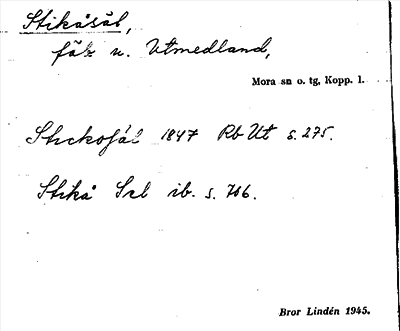 Stikåsäl,
fäb. n. Utmedland,
Mora sn o. tg, Kopp. l.
Stickosäl 1847 Rb Ut s. 275.
Stikå Säl ib. s. 706.
Bror Lindén 1945.